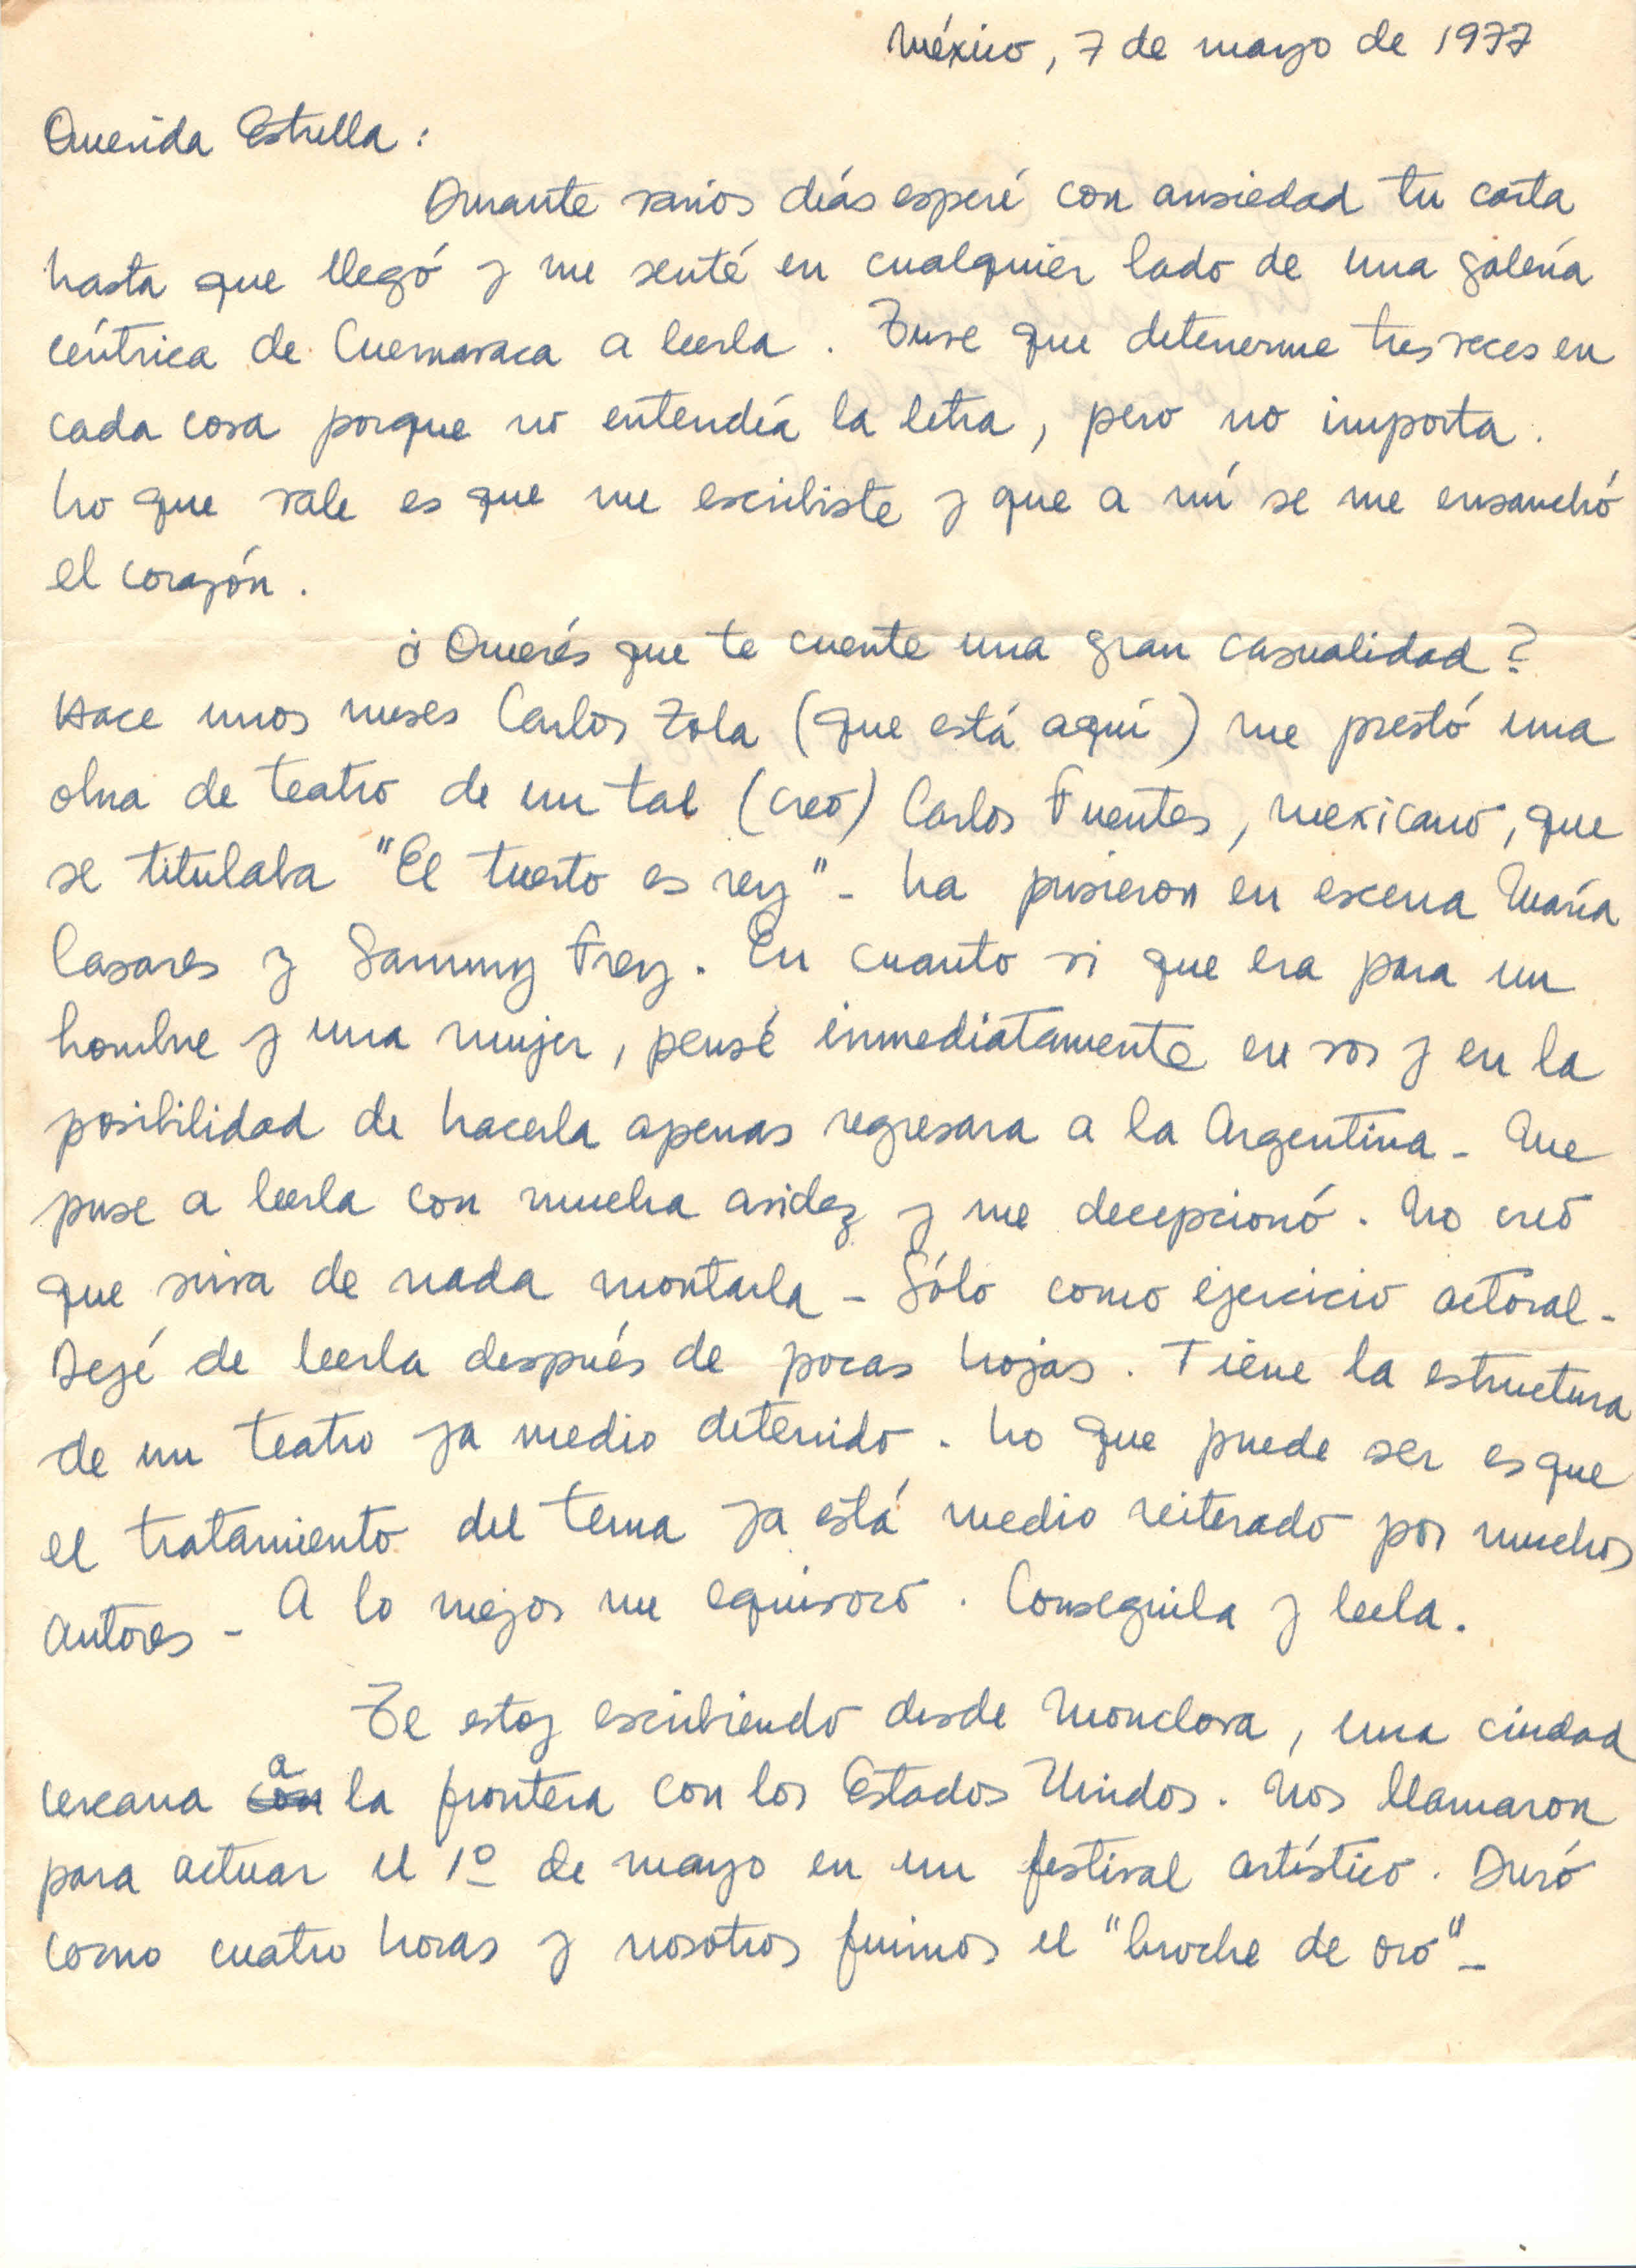 México, 7 de mayo de 1977
Querida Estrella :
Durante varios días esperé con ansiedad tu carta
hasta que llegó y me senté en cualquier lado de una galería
céntrica de Cuernavaca a leerla . Tuve que detenerme tres veces en
cada cosa porque no entendía la letra , pero no importa .
Lo que vale es que me escribiste y que a mí se me ensanchó
el corazón .
¿ Querés que te cuente una gran casualidad ?
Hace unos meses Carlos Zola (que está aquí) me prestó una
obra de teatro de un tal (creo) Carlos Fuentes, mexicano, que
se titulaba "El tuerto es rey" - La pusieron en escena María
Casares y Sammy Frey . En cuanto vi que era para un
hombre y una mujer, pensé inmediatamente en vos y en la
posibilidad de hacerla apenas regresara a la Argentina - Me
puse a leerla con mucha avidez y me decepcionó . No creo
que sirva de nada montarla - Sólo como ejercicio actoral -
Dejé de leerla después de pocas hojas . Tiene la estructura
de un teatro ya medio detenido . Lo que puede ser es que
el tratamiento del tema ya está medio reiterado por muchos
autores - A lo mejor me equivoco . Conseguila y leela .
Te estoy escribiendo desde Monclova , una ciudad
cercana con a la frontera con los Estados Unidos . Nos llamaron
para actuar el 1º de mayo en un festival artístico . Duró
como cuatro horas y nosotros fuimos el "broche de oro" -